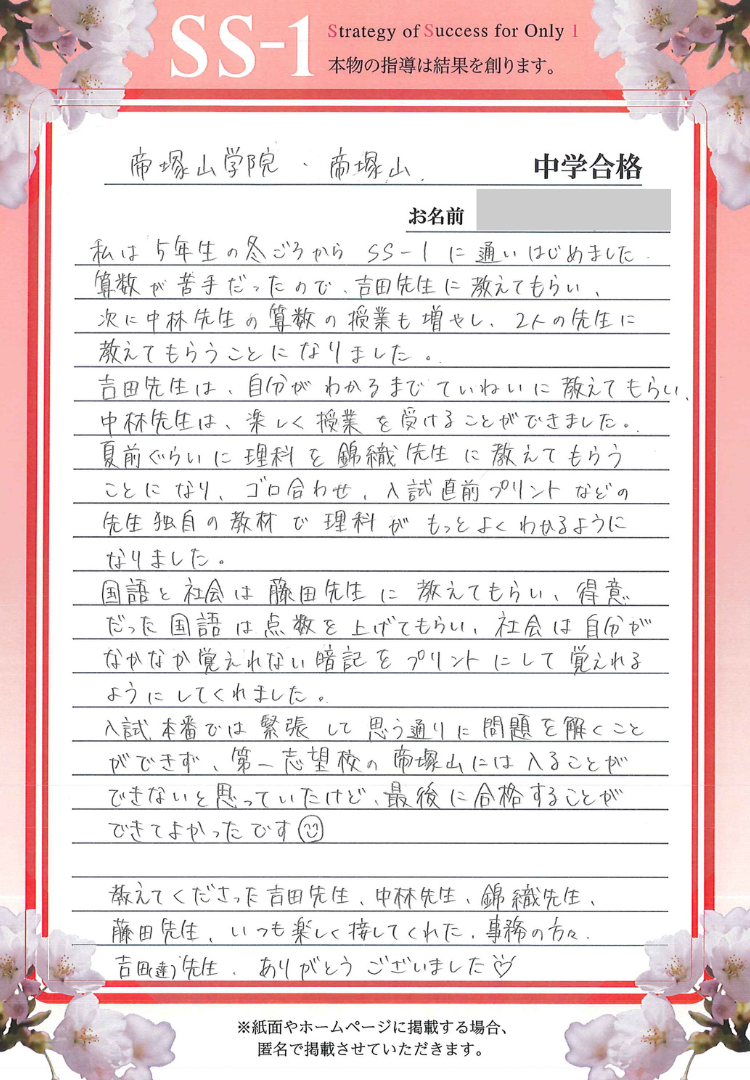 SS-1
Strategy of Success for Only 1
本物の指導は結果を創ります。
帝塚山学院・帝塚山 中学合格
お名前
私は5年生の冬ごろから SS-1に通いはじめました.
算数が苦手だったので、吉田先生に教えてもらい、
次に中林先生の算数の授業も増やし、2人の先生に
教えてもらうことになりました。
吉田先生は、自分がわかるまでていねいに教えてもらい、
中林先生は、楽しく授業を受けることができました。
夏前ぐらいに理科を錦織先生に教えてもらう
ことになり、ゴロ合わせ、入試直前プリントなどの
先生独自の教材で理科がもっとよくわかるように
なりました。
国語と社会は藤田先生に教えてもらい、得意
だった国語は点数を上げてもらい、社会は自分が
なかなか覚えれない暗記をプリントにして覚えれる
ようにしてくれました。
入試本番では緊張して思う通りに問題を解くこと
ができず、第一志望校の帝塚山には入ることが
できないと思っていたけど、最後に合格することが
できてよかったです
教えてくださった吉田先生、中林先生、錦織先生、
藤田先生、いつも楽しく接してくれた、事務の方々.
吉田(達)先生、ありがとうございました♡
※紙面やホームページに掲載する場合、
匿名で掲載させていただきます。